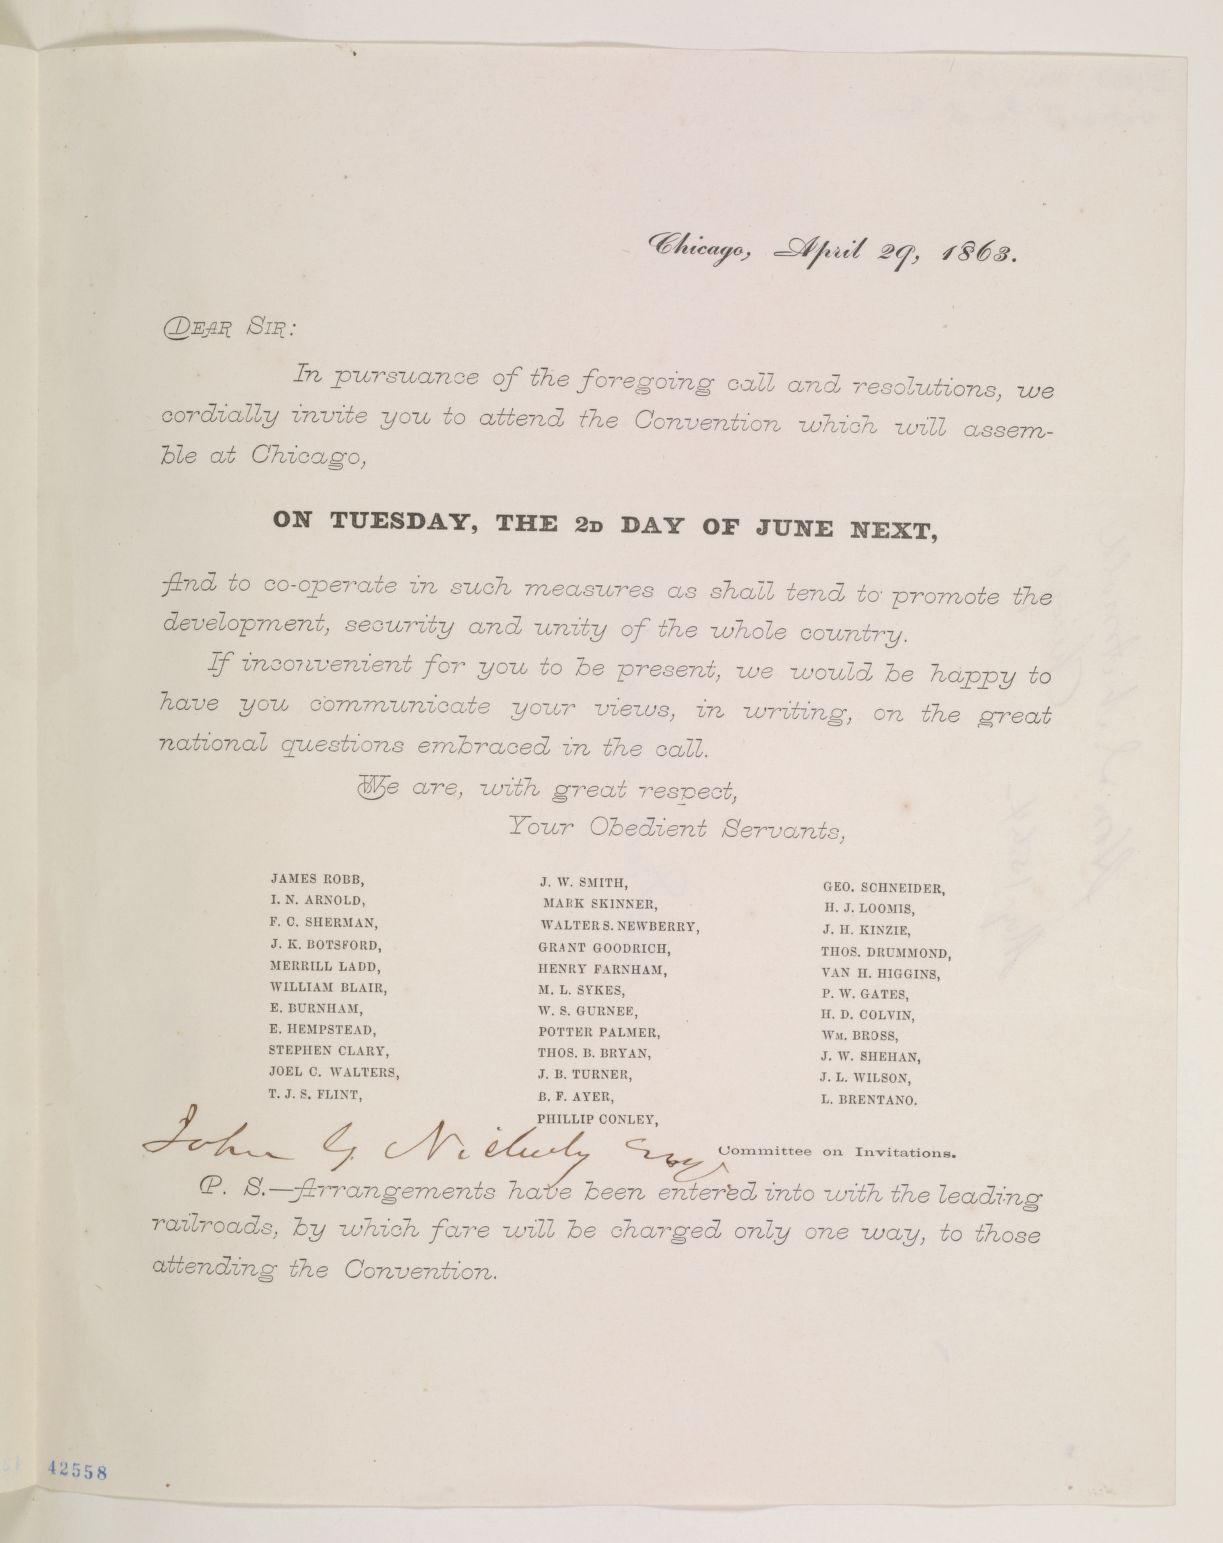 Chicago, April 29, 1863.
DEAR SIR:
In pursuance of the foregoing call and resolutions, we
cordially invite you to attend the Convention which will assem-
ble at Chicago,
ON TUESDAY, THE 2D DAY OF JUNE NEXT,
And to co-operate in such measures as shall tend to promote the
development, security and unity of the whole country.
If inconvenient for you to be present, we would be happy to
have you communicate your views, in writing, on the great
national questions embraced in the call.
We are, with great respect,
Your Obedient Servants,
JAMES ROBB,
I. N. ARNOLD,
F. C. SHERMAN,
J. K. BOTSFORD,
MERRILL LADD,
WILLIAM BLAIR,
E. BURNHAM,
E. HEMPSTEAD,
STEPHEN CLARY,
JOEL C. WALTERS,
T. J. S. FLINT,
J. W. SMITH,
MARK SKINNER,
WALTER S. NEWBERRY,
GRANT GOODRICH,
HENRY FARNHAM,
M. L. SYKES,
W. S. GURNEE,
POTTER PALMER,
THOS. B. BRYAN,
J. B. TURNER,
B. F. AYER,
PHILLIP CONLEY,
GEO. SCHNEIDER,
H. J. LOOMIS,
J. H. KINZIE,
THOS. DRUMMOND,
VAN H. HIGGINS,
P. W. GATES,
H. D. COLVIN,
WM. BROSS,
J. W. SHEHAN,
J. L. WILSON,
L. BRENTANO.
Committee on Invitations.
John G. Nicholy Esq
P. S.—Arrangements have been entered into with the leading
railroads, by which fare will be charged only one way, to those
attending the Convention.
42558